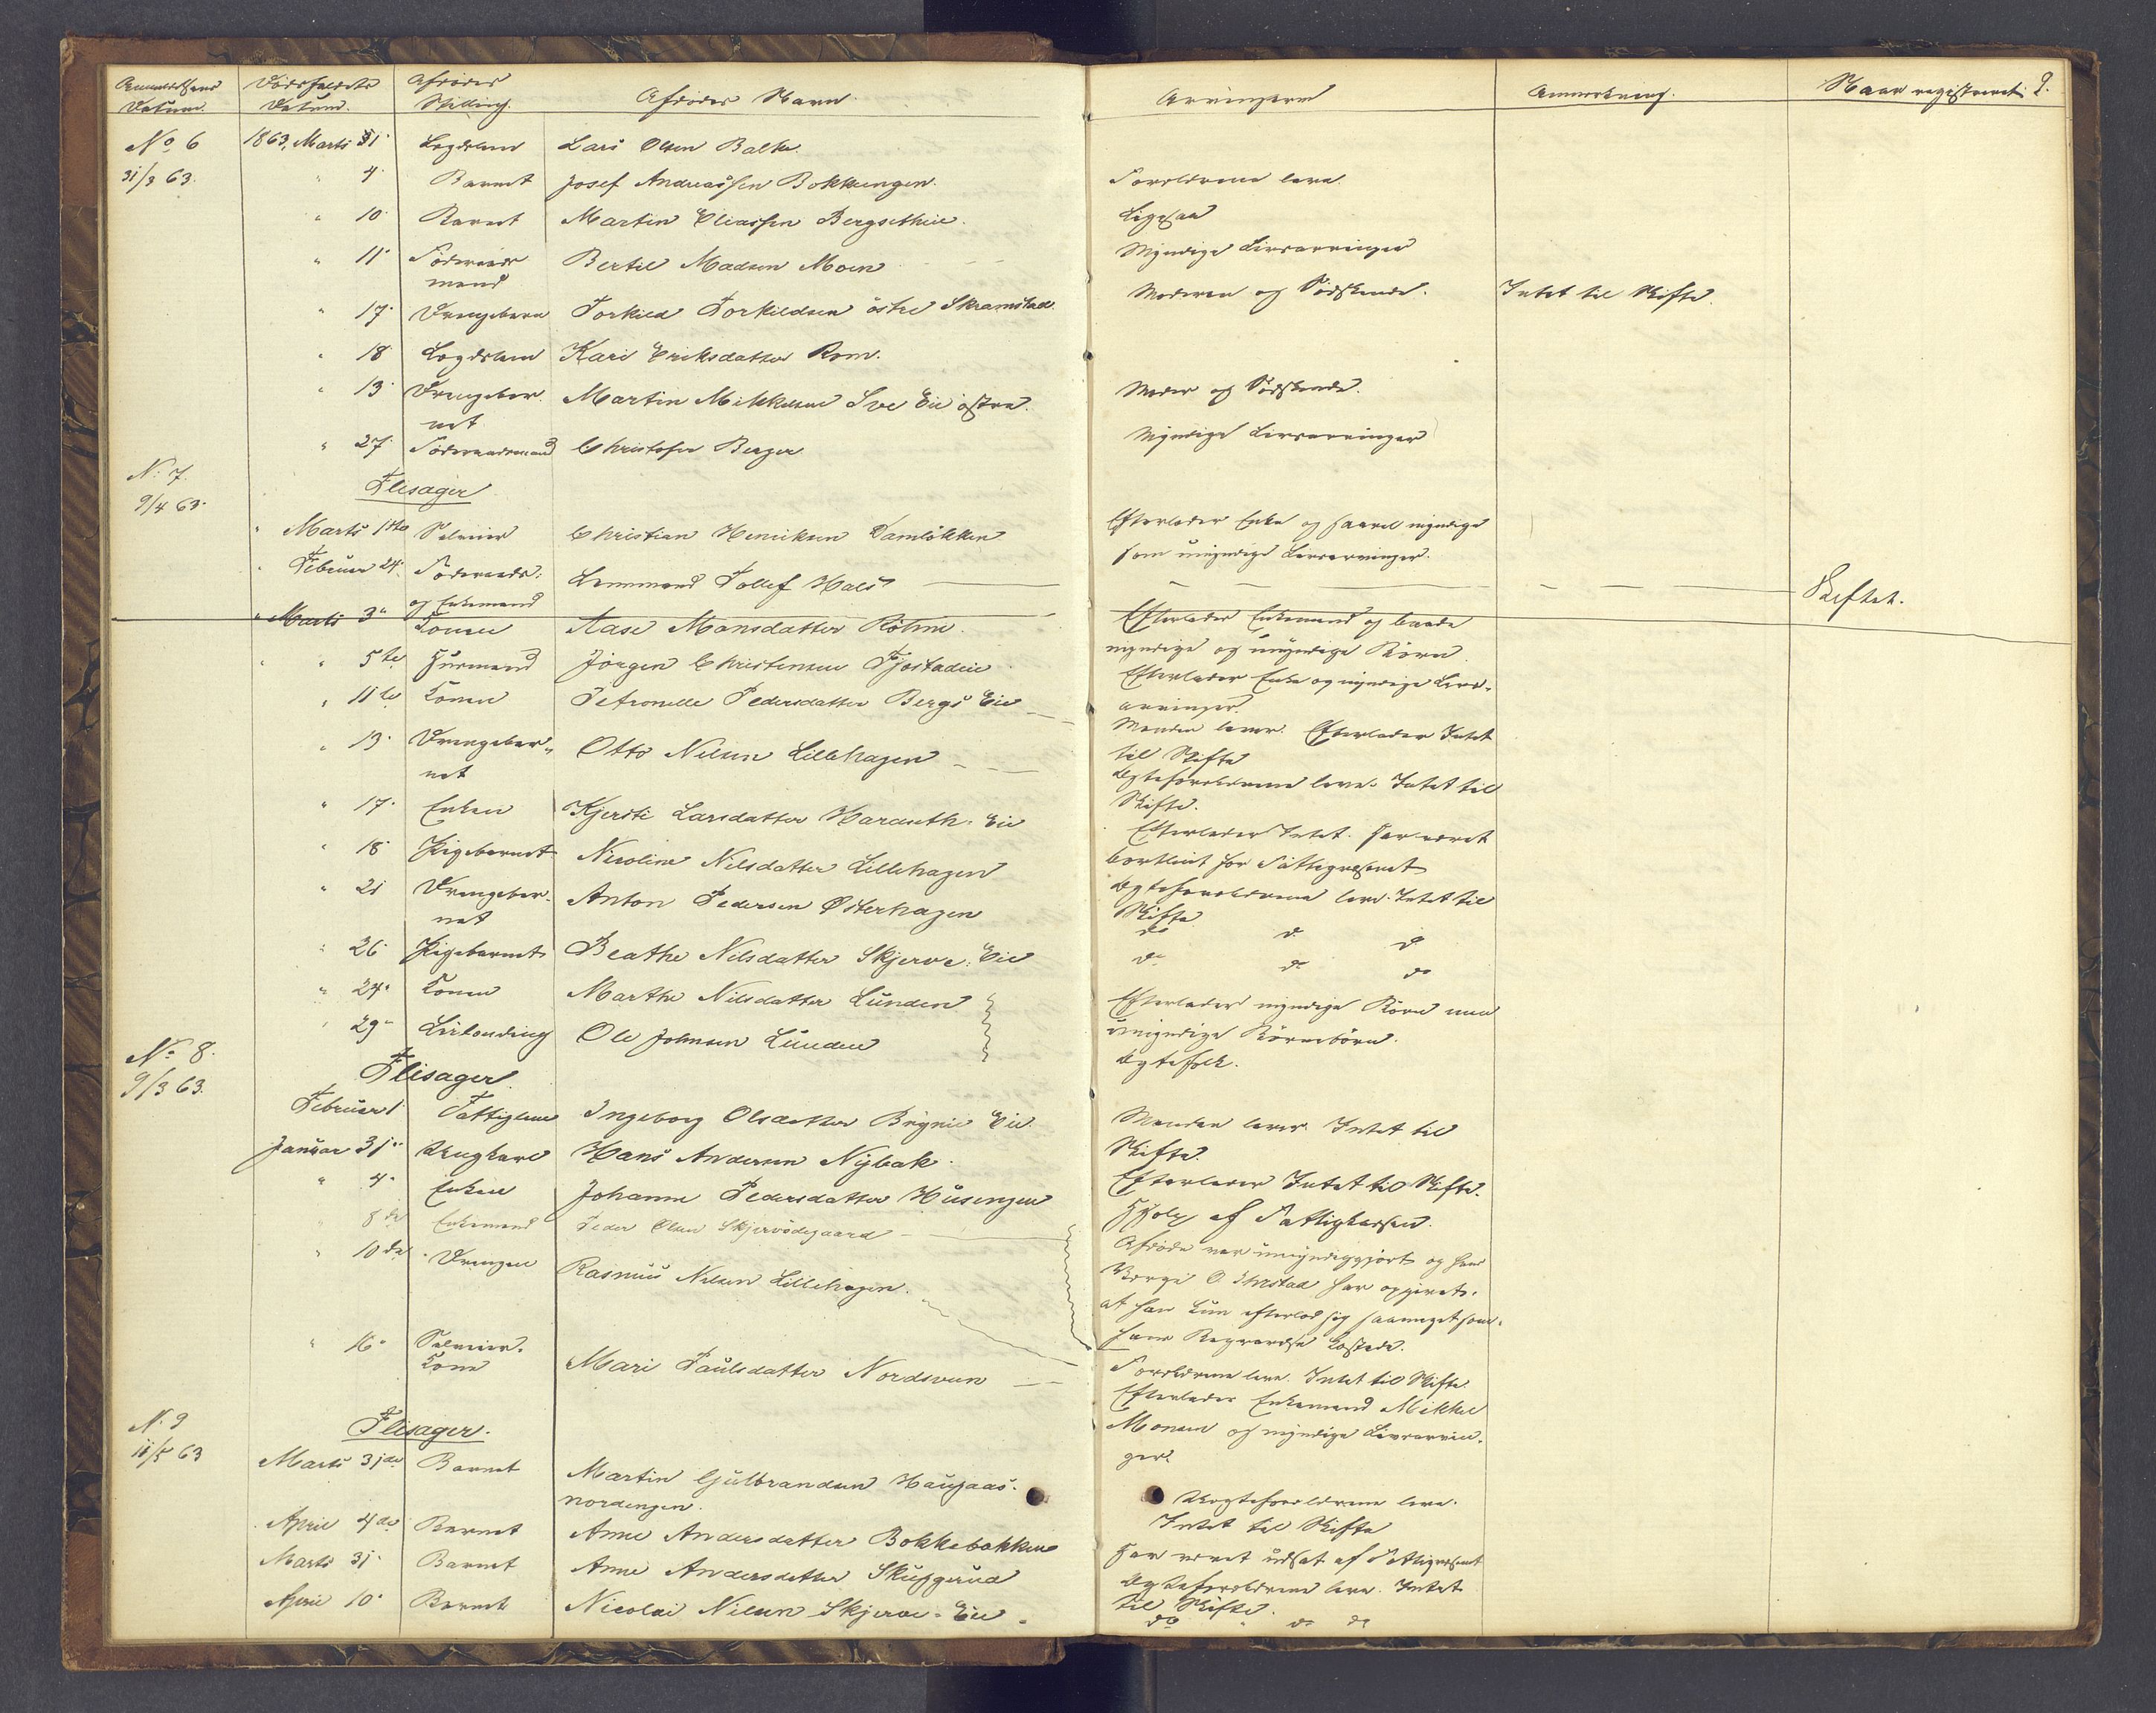 Anmeldelsens Datum. Dødsfaldets Datum. Afdødes Stilling. Afdødes Navn. Arvingerne Anmerkning. Naar registreret 9.
No 6 1863, Marts 31. Lægdslem Lars Olsen Balke.
31/3 63. " 4. Barnet Josef Andreassen Bokkengen. Forældrene leve.
" 10. Barnet Martin Eliassen Bergsetheie. Ligesaa
" 11. Föderaadsmand Bertil Madsen Moen Myndige Livsarvinger
" 17. Drengebarn Torkild Torkildsen östre Skramstad. Moderen og Södskende. Intet til Skifte.
" 18 Lægdslem Kari Eriksdatter Rom.
" 13. Drengebarnet Martin Mikkelsen Sve Eie östre. Moder og Södskende.
" 27. Föderaadsmand Christofer Berger Myndige Livsarvinger
N. 7.
9/4 63. Flisager
" Marts 1ste Selveier Christian Henriksen Damlökken Efterlader Enke og saavel myndige
som umyndige Livsarvinger.
" Februar 24. Föderaads: og Enkemand Lemmand Tollef Hals Skiftet.
" Marts 3. Konen Aase Monsdatter Röhne. Efterlader Enkemand og baade
myndige og umyndige Börn.
" " 5te Huusmand Jörgen Christensen Fjostadeie Efterlader Enke og myndige Livsarvinger.
" 11te Konen Petronelle Pedersdatter Bergs Eie Manden lever. Efterlader Intet
til Skifte
" 13. Drengebarnet Otto Nilsen Lillehagen Ægteforældrene leve. Intet til
Skifte.
" 17. Enken Kjersti Larsdatter Haraseth Eie Efterlader Intet. Har været
bortlagt for Fattigvæsenet
" 18 Pigebarnet Nicoline Nilsdatter Lillehagen Ægteforældrene leve. Intet til
Skifte
" 21 Drengebarnet Anton Pedersen Österhagen do do do
" 26. Pigebarnet Beathe Nilsdatter Skjerve Eie do do do
" 24. Konen Marthe Nilsdatter Lunden Efterlader myndige Börn men
umyndige Börnebörn.
" 29. Ole Johnsen Lunden Ægtefolk.
No 8.
9/3 63. Flisager.
Februar 1. Fattiglem Ingeborg Olsdatter Brynie Eie Manden lever. Intet til
Skifte.
Januar 31. Ungkarl Hans Andersen Nybak. Efterlader Intet til Skifte.
" 4. Enken Johanne Pedersdatter Husengen Hjolp af Fattigkassen.
" 8de Enkemand Peder Olsen Skjervödegaard Afdöde var umyndiggjort og hans
Værge O. Ihrstad har opgivet,
at han kun efterlod sig saameget som
hans Begravelse kostede.
" 10de Drengen Rasmus Nilsen Lillehagen. Forældrene leve. Intet til Skifte.
" 16. Selveier. Kone Mari Paulsdatter Nordsveen Efterlader Enkemand Mikkel
Monsen og myndige Livsarvinger.
N. 9
11/5 63 Flisager.
Marts 31de Barnet Martin Gulbrandsen Haugaas-
nordengen. Ægteforældrene leve.
Intet til Skifte
April 4de Barnet Anne Andersdatter Bokkebakken Har været udsat af Fattigvæsenet
Marts 31. Barnet Anne Andersdatter Skupgerud Ægteforældrene leve. Intet
til Skifte.
April 10. Barnet Nicolai Nilsen Skjerve-Eie do " do do